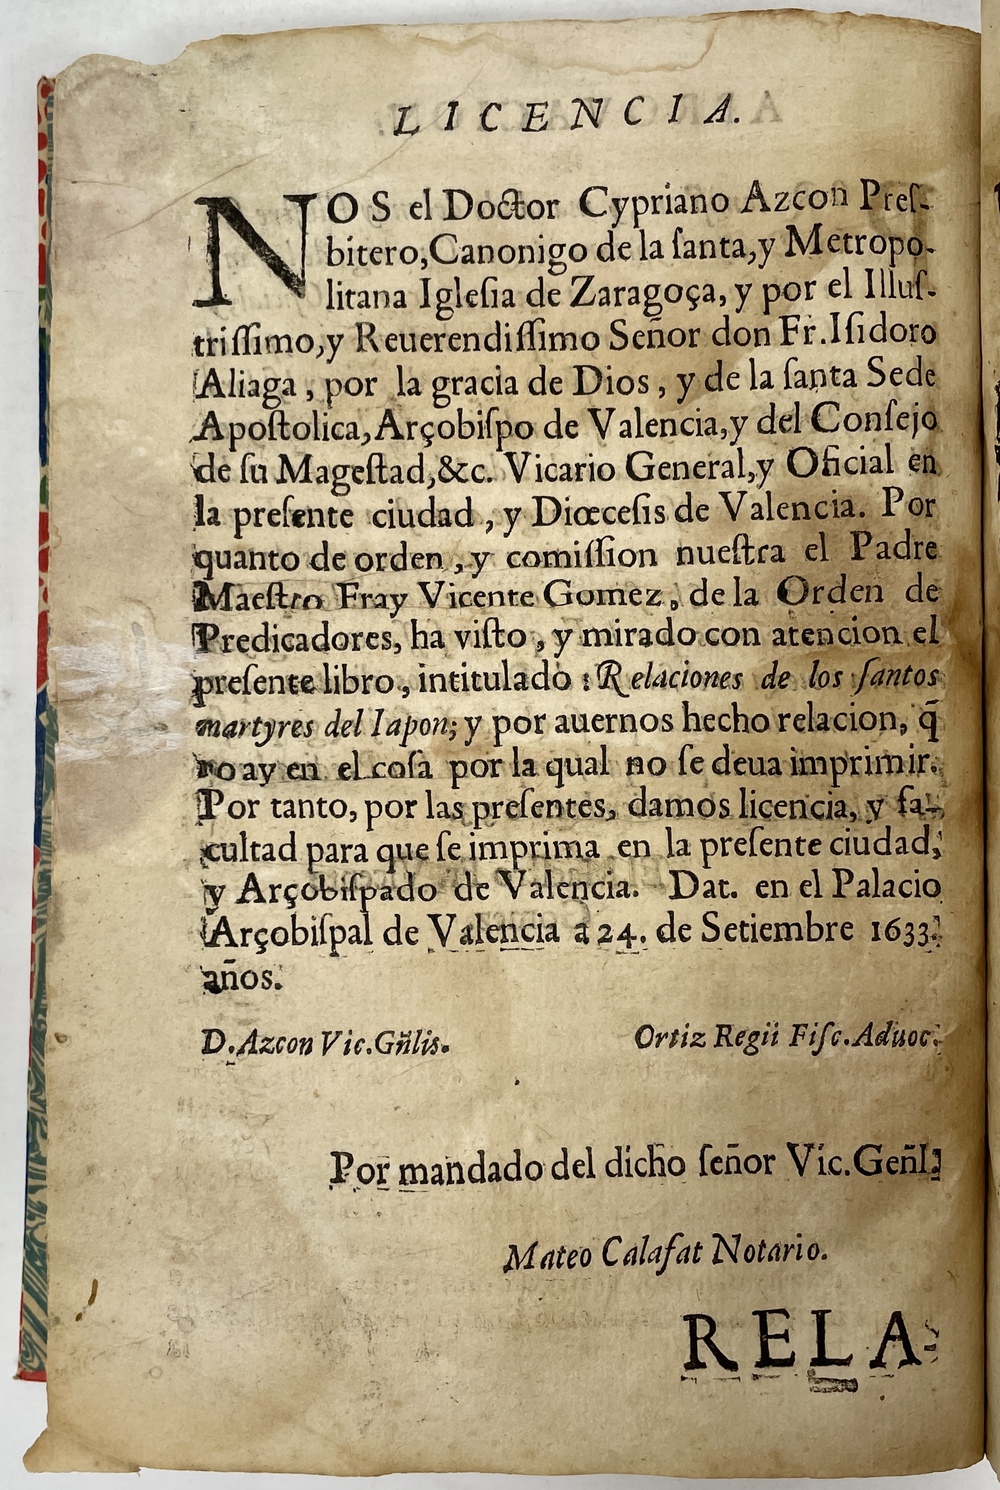 LICENCIA.
NOS el Doctor Cypriano Azcon Preſ-
bitero, Canonigo de la ſanta, y Metropo-
litana Igleſia de Zaragoça, y por el Illuſ-
triſſimo, y Reuerendiſſimo Señor don Fr. Iſidoro
Aliaga, por la gracia de Dios, y de la ſanta Sede
Apoſtolica, Arçobiſpo de Valencia, y del Conſejo
de ſu Mageſtad, &c. Vicario General, y Oficial en
la preſente ciudad, y Diœceſis de Valencia. Por
quanto de orden, y comiſſion nueſtra el Padre
Maeſtro Fray Vicente Gomez, de la Orden de
Predicadores, ha viſto, y mirado con atencion el
preſente libro, intitulado: Relaciones de los ſantos
martyres del Iapon; y por auernos hecho relacion, q̃
no ay en el coſa por la qual no ſe deua imprimir.
Por tanto, por las preſentes, damos licencia, y fa-
cultad para que ſe imprima en la preſente ciudad,
y Arçobiſpado de Valencia. Dat. en el Palacio
Arçobiſpal de Valencia a 24. de Setiembre 1633.
años.
D. Azcon Vic. Gñlis. Ortiz Regii Fiſc. Aduoc.
Por mandado del dicho ſeñor Vic. Geñl.
Mateo Calafat Notario.
RELA-